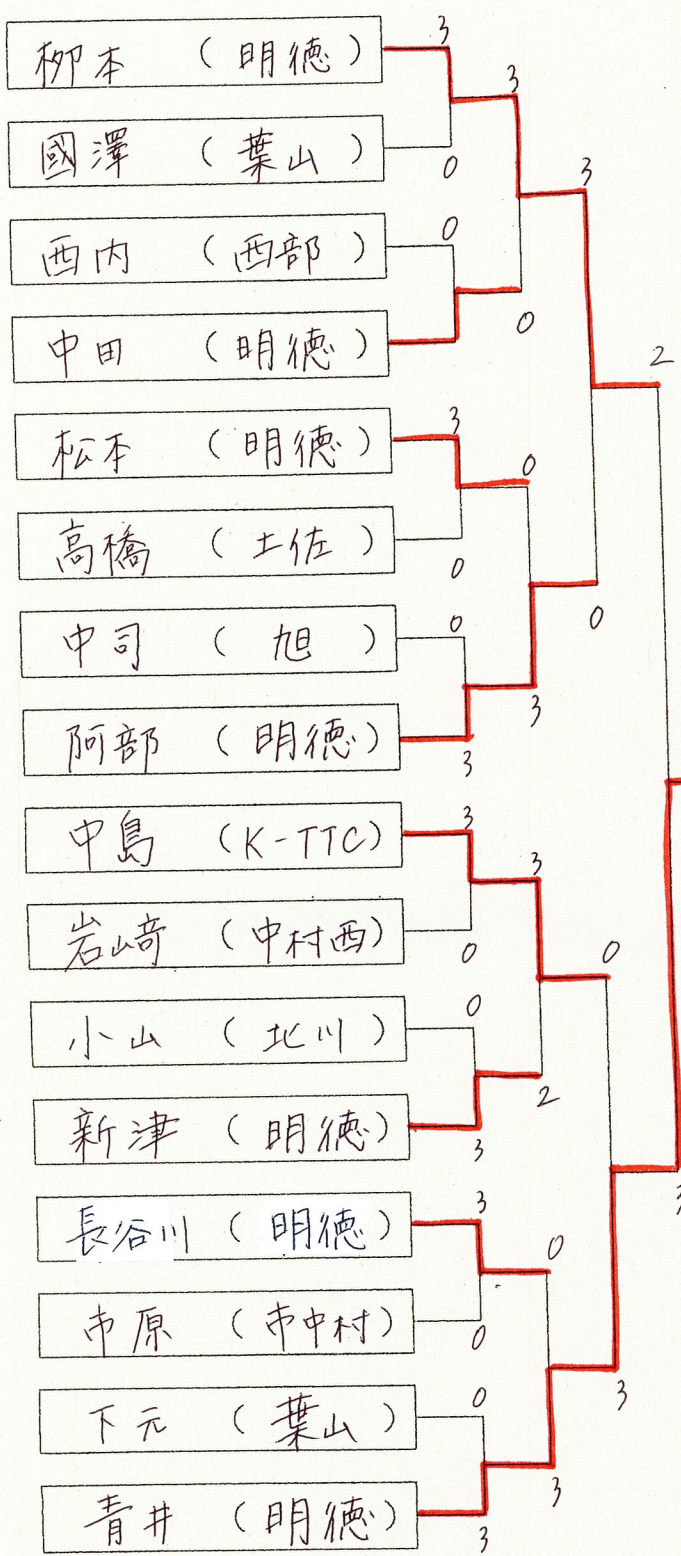 3
柳本 (明徳)
3
國澤 (葉山)
0
3
0
西内 (西部)
0
中田 (明徳)
2
3
松本 (明徳)
0
高橋 (土佐)
0
0
中司 (旭)
0
3
阿部 (明徳)
3
3
中島 (K-TTC)
3
岩崎 (中村西)
0
0
0
小山 (北川)
2
新津 (明徳)
3
3
長谷川 (明徳)
0
市原 (市中村)
0
0
3
下元 (葉山)
3
青井 (明徳)
3